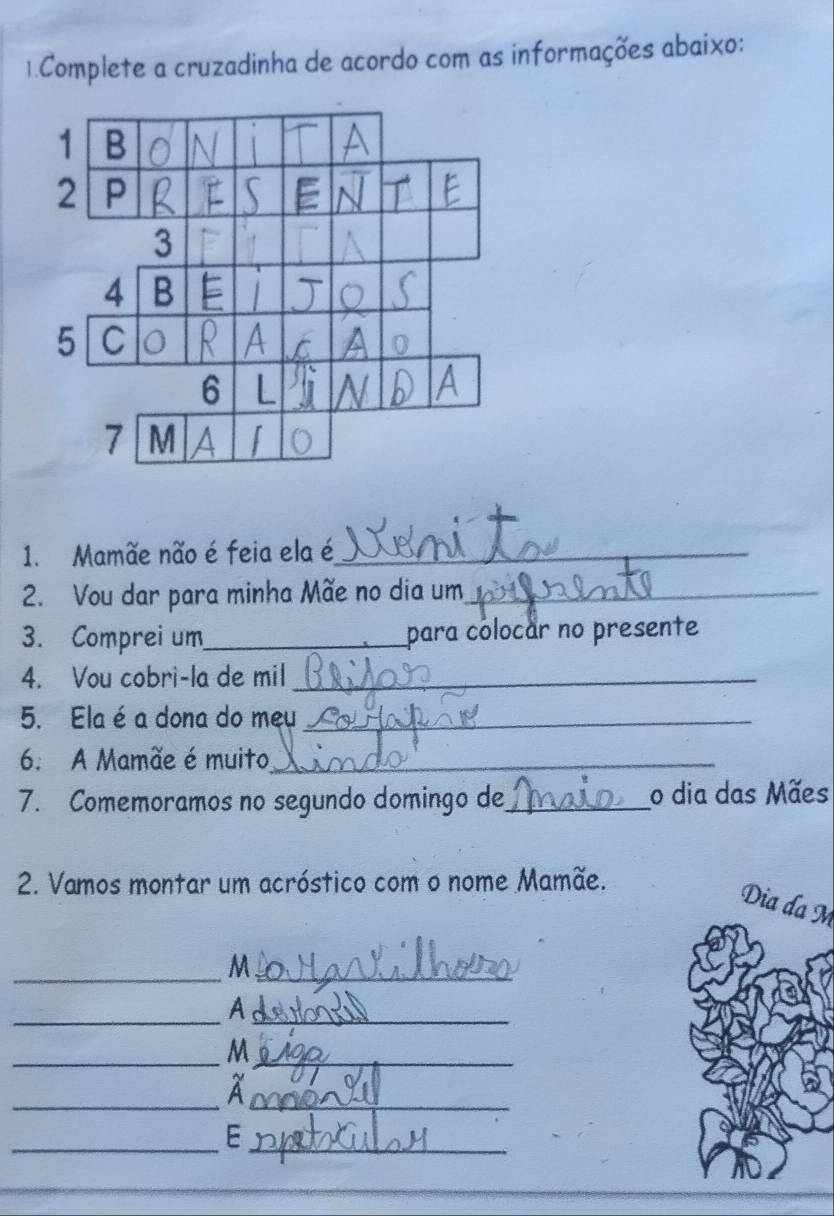 1. Complete a cruzadinha de acordo com as informações abaixo:
1 B O N I T A
2 P R E S E N T E
3 F I T A
4 B E I J O S
5 C O R A Ç A O
6 L I N D A
7 M A I O
1. Mamãe não é feia ela é
2. Vou dar para minha Mãe no dia um
3. Comprei um____________para colocar no presente
4. Vou cobri-la de mil Beijos
5. Ela é a dona do meu
6. A Mamãe é muito linda
7. Comemoramos no segundo domingo de maio o dia das Mães
2. Vamos montar um acróstico com o nome Mamãe.
Dia da M
Maravilhosa
Adorável
Meiga
Ãmável
E